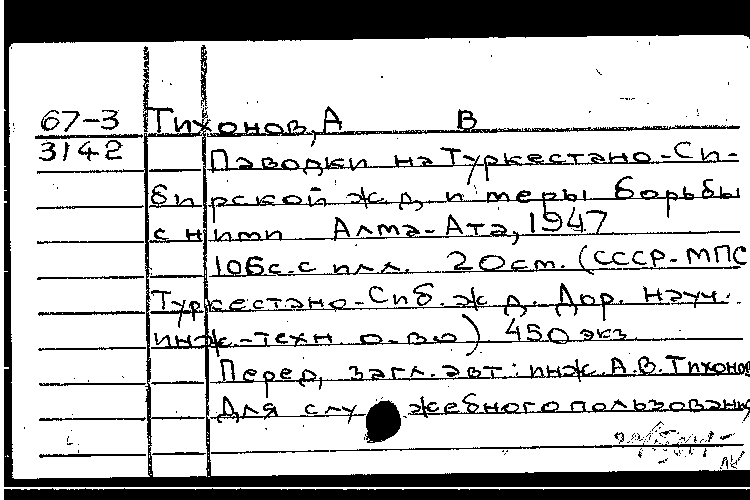 67-3 Тихонов, А В
3142 Паводки на Туркестано-Си-
бирской ж.д. и меры борьбы
с ними Алма-Ата, 1947
106с. с илл. 20см. (СССР-МПС
Туркестано-Сиб. ж д. Дор. науч.
инж-техн о-во) 450 экз
Перед, загл. авт: инж. А.В. Тихонов
Для служебного пользования